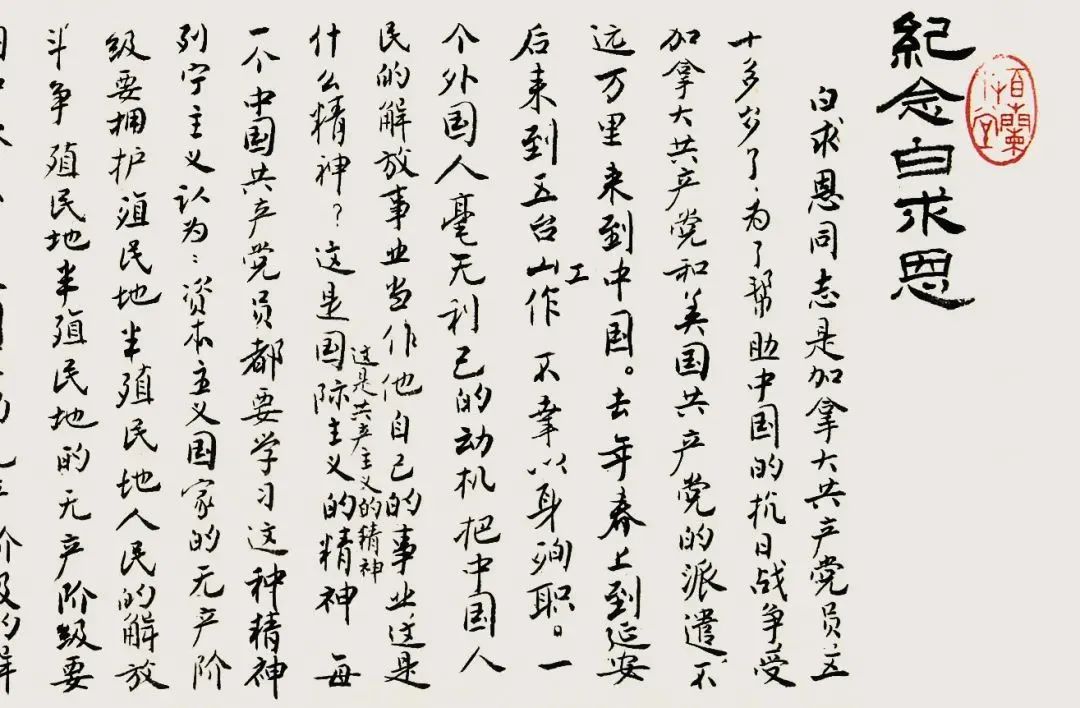 紀念白求恩
白求恩同志是加拿大共产党员五
十多岁了,为了帮助中国的抗日战争受
加拿大共产党和美国共产党的派遣不
远万里来到中国。去年春上到延安
后来到五台山工作 不幸以身殉职。一
个外国人毫无利己的动机 把中国人
民的解放事业当作他自己的事业这是
这是共产主义的精神
什么精神?这是国际主义的精神 每
一个中国共产党员都要学习这种精神
列宁主义认为:资本主义国家的无产阶
级要拥护殖民地半殖民地人民的解放
斗争 殖民地半殖民地的无产阶级要